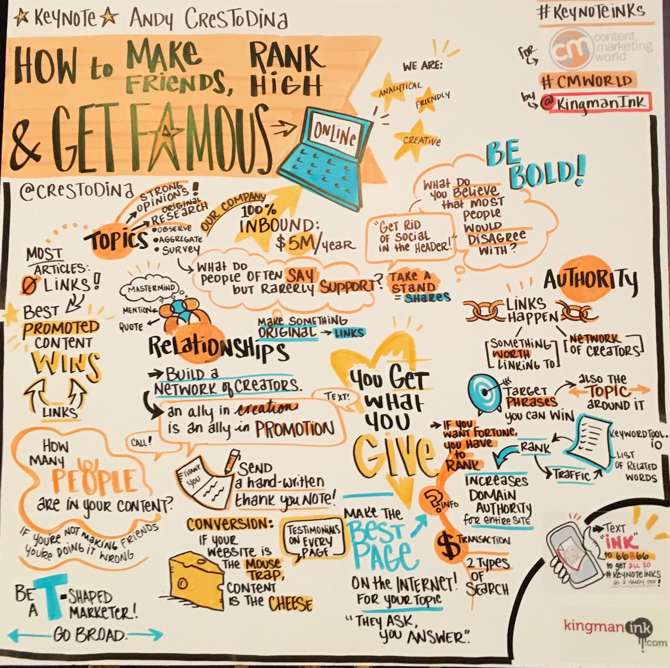 ★ KEYNOTE ★ ANDY CRESTODINA
HOW to MAKE FRIENDS, RANK HIGH
& GET FAMOUS
ONLINE
@CRESTODINA
WE ARE:
ANALYTICAL
FRIENDLY
CREATIVE
#KEYNOTEINKS
FOR
cm content marketing world
#CMWORLD
by @KingmanInk
BE BOLD!
WHAT DO YOU BELIEVE THAT MOST PEOPLE WOULD DISAGREE WITH?
"GET RID OF SOCIAL IN THE HEADER!"
TOPICS
STRONG OPINIONS!
ORIGINAL RESEARCH
• OBSERVE
• AGGREGATE
• SURVEY
OUR COMPANY
100% INBOUND:
$5M/year
WHAT DO PEOPLE OFTEN SAY
BUT RARERLY SUPPORT?
TAKE A STAND = SHARES
MOST ARTICLES:
0 LINKS!
BEST PROMOTED CONTENT WINS
LINKS
MASTERMIND
MENTION
QUOTE
RELATIONSHIPS
MAKE SOMETHING ORIGINAL → LINKS
→ BUILD A NETWORK OF CREATORS.
an ally in creation
is an ally in PROMOTION
TEXT!
CALL!
HOW MANY PEOPLE ARE IN YOUR CONTENT?
IF YOU'RE NOT MAKING FRIENDS YOU'RE DOING IT WRONG
THANK YOU
SEND a hand-written thank you NOTE!
CONVERSION:
IF YOUR WEBSITE IS THE MOUSE TRAP, CONTENT IS THE CHEESE
TESTIMONIALS ON EVERY PAGE
BE A T-SHAPED MARKETER!
GO BROAD.
YOU GET WHAT YOU GIVE
MAKE THE BEST PAGE
ON THE INTERNET!
FOR YOUR TOPIC
"THEY ASK, YOU ANSWER".
AUTHORITY
LINKS HAPPEN
[SOMETHING WORTH LINKING TO]
[NETWORK OF CREATORS]
TARGET PHRASES YOU CAN WIN
also the TOPIC around it
→ IF YOU WANT FORTUNE, YOU HAVE TO RANK
RANK
TRAFFIC
KEYWORDTOOL.io
LIST OF RELATED WORDS
INCREASES DOMAIN AUTHORITY FOR ENTIRE SITE
? INFO
$ TRANSACTION
2 TYPES OF SEARCH
TEXT
"INK"
to 66866
to get all 20
#KEYNOTEINKS
kingmanink.com